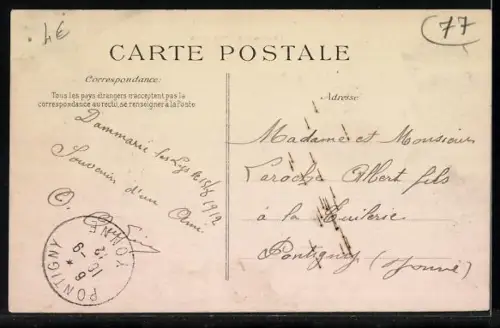 3€
77
CARTE POSTALE
Correspondance:
Tous les pays étrangers n'acceptent pas la
correspondance au recto, se renseigner à la Poste.
Adresse
Dammarie les Lys le 15/6 1912
Souvenir d'un Ami
Madame et Monsieur
Laroche Albert fils
à la Tuilerie
Pontigny (Yonne)
PONTIGNY YONNE
16 - 6
12